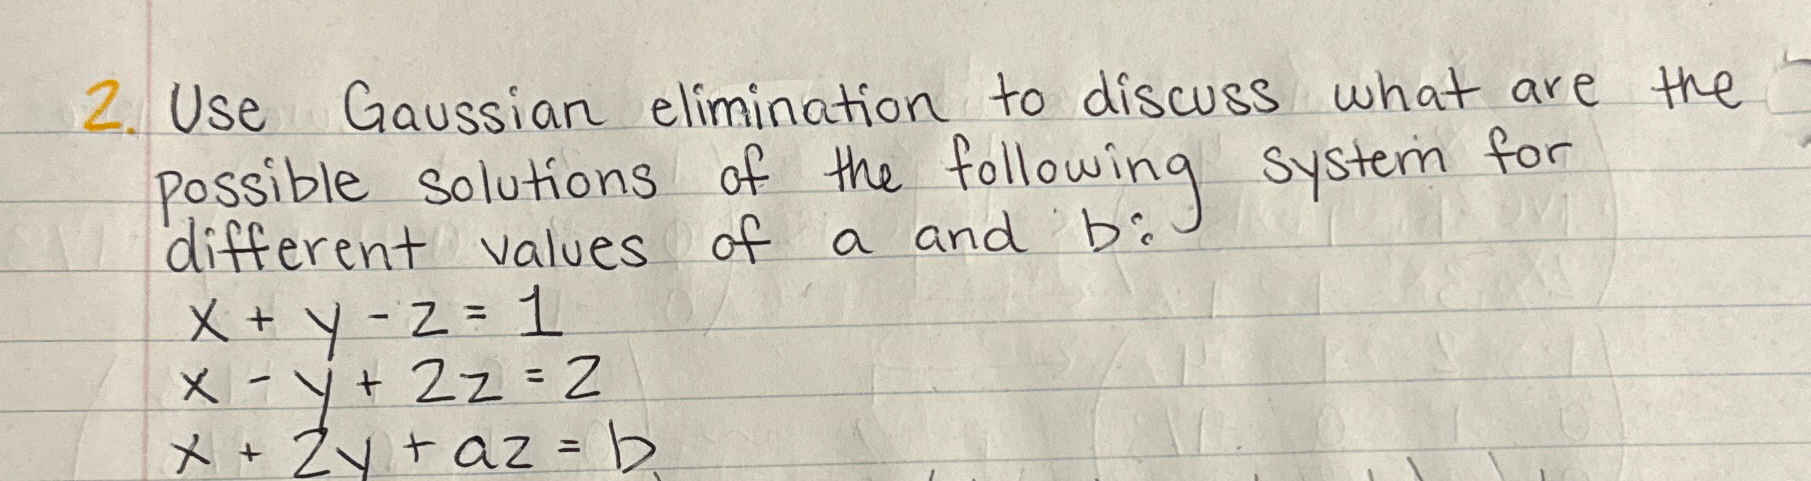 2. Use Gaussian elimination to discuss what are the
possible solutions of the following system for
different values of a and b:
x + y - z = 1
x - y + 2z = 2
x + 2y + az = b